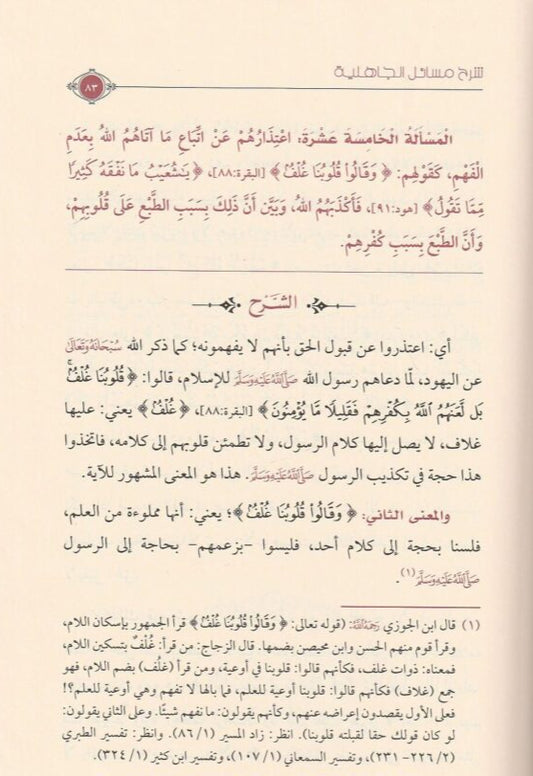 شرح مسائل الجاهلية
٨٣
الْمَسْأَلَةُ الْخَامِسَةَ عَشْرَةَ: اعْتِذَارُهُمْ عَنْ اتِّبَاعِ مَا آتَاهُمُ اللهُ بِعَدَمِ
الْفَهْمِ، كَقَوْلِهِمْ: ﴿وَقَالُوا۟ قُلُوبُنَا غُلْفٌۢ﴾ [البقرة:٨٨]، ﴿يَـٰشُعَيْبُ مَا نَفْقَهُ كَثِيرًا
مِّمَّا تَقُولُ﴾ [هود:٩١]، فَأَكْذَبَهُمُ اللهُ، وَبَيَّنَ أَنَّ ذَلِكَ بِسَبَبِ الطَّبْعِ عَلَى قُلُوبِهِمْ،
وَأَنَّ الطَّبْعَ بِسَبَبِ كُفْرِهِمْ.
الشرح
أي: اعتذروا عن قبول الحق بأنهم لا يفهمونه؛ كما ذكر الله سُبْحَانَهُ وَتَعَالَى
عن اليهود، لمّا دعاهم رسول الله صَلَّى اللَّهُ عَلَيْهِ وَسَلَّمَ للإسلام، قالوا: ﴿قُلُوبُنَا غُلْفٌۢۚ
بَل لَّعَنَهُمُ ٱللَّهُ بِكُفْرِهِمْ فَقَلِيلًا مَّا يُؤْمِنُونَ﴾ [البقرة:٨٨]، ﴿غُلْفٌۢ﴾ يعني: عليها
غلاف، لا يصل إليها كلام الرسول، ولا تطمئن قلوبهم إلى كلامه، فاتخذوا
هذا حجة في تكذيب الرسول صَلَّى اللَّهُ عَلَيْهِ وَسَلَّمَ. هذا هو المعنى المشهور للآية.
والمعنى الثاني: ﴿وَقَالُوا۟ قُلُوبُنَا غُلْفٌۢ﴾؛ يعني: أنها مملوءة من العلم،
فلسنا بحجة إلى كلام أحد، فليسوا -بزعمهم- بحاجة إلى الرسول
صَلَّى اللَّهُ عَلَيْهِ وَسَلَّمَ(١).
(١) قال ابن الجوزي رَحِمَهُ اللَّهُ: (قوله تعالى: ﴿وَقَالُوا۟ قُلُوبُنَا غُلْفٌۢ﴾ قرأ الجمهور بإسكان اللام،
وقرأ قوم منهم الحسن وابن محيصن بضمها. قال الزجاج: من قرأ: غُلْفٌ بتسكين اللام،
فمعناه: ذوات غلف، فكأنهم قالوا: قلوبنا في أوعية، ومن قرأ (غلُف) بضم اللام، فهو
جمع (غلاف) فكأنهم قالوا: قلوبنا أوعية للعلم، فما بالها لا تفهم وهي أوعية للعلم؟!
فعلى الأول يقصدون إعراضه عنهم، وكأنهم يقولون: ما نفهم شيئًا. وعلى الثاني يقولون:
لو كان قولك حقا لقبلته قلوبنا). انظر: زاد المسير (١/ ٨٦). وانظر: تفسير الطبري
(٢/ ٢٢٦- ٢٣١)، وتفسير السمعاني (١/ ١٠٧)، وتفسير ابن كثير (١/ ٣٢٤).